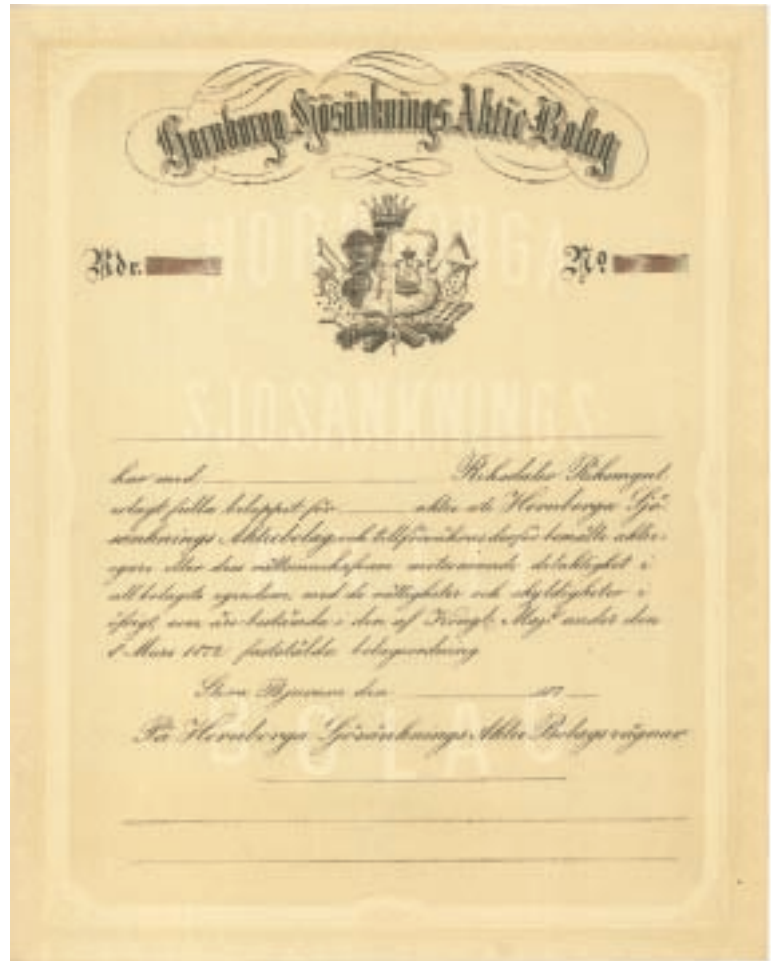 Hornborga Sjösänknings Aktie Bolag
Rdr. Nº
HORNBORGA
SJÖSÄNKNINGS
har med Riksdaler Riksmynt
erlagt fulla beloppet för aktie uti Hornborga Sjö
sänknings Aktiebolag och tillförsäkras derför bemälte aktie-
egare eller dess rättinnehafvare motsvarande delaktighet i
all bolagets egendom, med de rättigheter och skyldigheter i
öfrigt, som äro bestämda i den af Kongl. Maj:t under den
8 Mars 1872 fastställda bolagsordning
Stora Bjurum den 187
På Hornborga Sjösänknings Aktie Bolags vägnar
BOLAG